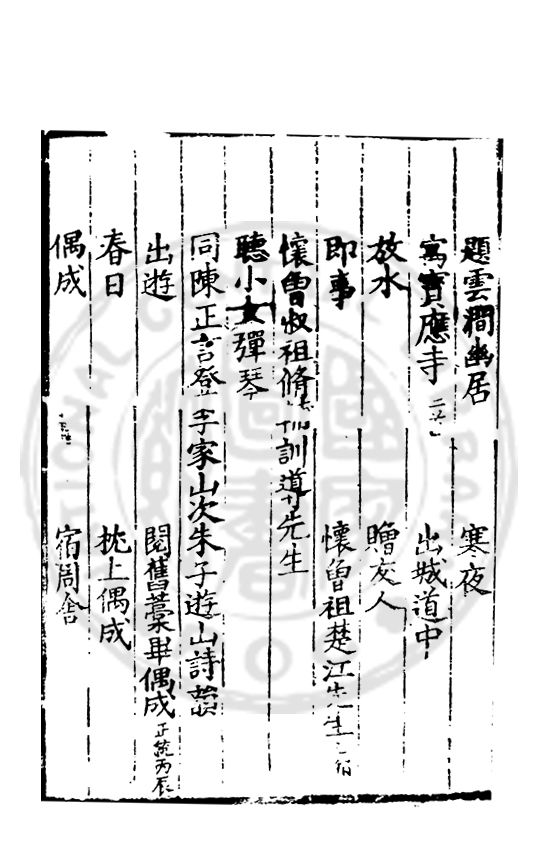 題雲澗幽居 寒夜
寓寶應寺 出城道中
放水 贈友人
即事 懷曾祖楚江先生
懷曾叔祖脩訓導先生
聽小女彈琴
同陳正言登李家山次朱子遊山詩韻
出遊 閱舊藁畢偶成 正統丙辰
春日 枕上偶成
偶成 宿周舍